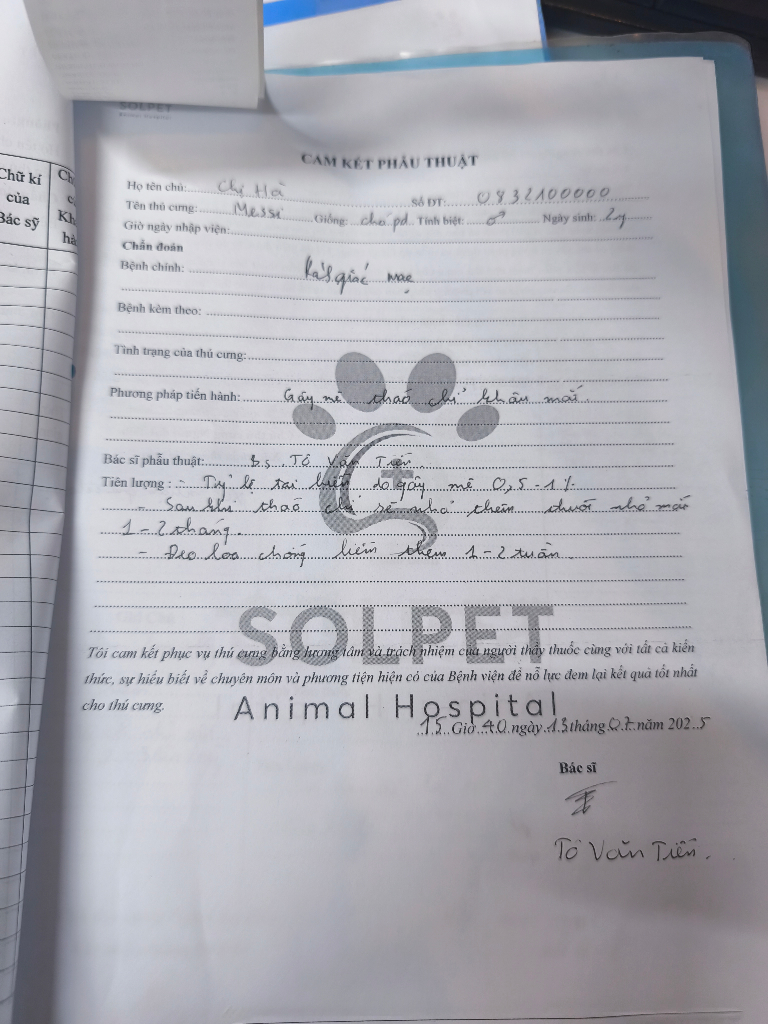 SOLPET
CAM KẾT PHẪU THUẬT
Chữ kí
của
Bác sỹ
Họ tên chủ: Chị Hà Số ĐT: 0832100000
Tên thú cưng: Messi Giống: chó pd Tính biệt: ♂ Ngày sinh: 2y
Giờ ngày nhập viện:
Chẩn đoán
Bệnh chính: giác mạc
Bệnh kèm theo:
Tình trạng của thú cưng:
Phương pháp tiến hành: Gây mê tháo chỉ khâu mắt.
Bác sĩ phẫu thuật: Bs Tô Văn Tiến
Tiên lượng : - Tỷ lệ tai biến do gây mê 0,5-1%
- Sau khi tháo chỉ sẽ nhỏ thêm thuốc nhỏ mắt
1-2 tháng.
- Đeo loa chống liếm thêm 1-2 tuần.
SOLPET
Tôi cam kết phục vụ thú cưng bằng lương tâm và trách nhiệm của người thầy thuốc cùng với tất cả kiến
thức, sự hiểu biết về chuyên môn và phương tiện hiện có của Bệnh viện để nỗ lực đem lại kết quả tốt nhất
cho thú cưng.
Animal Hospital
15 Giờ 40 ngày 13 tháng 07 năm 2025
Bác sĩ
Tô Văn Tiến.